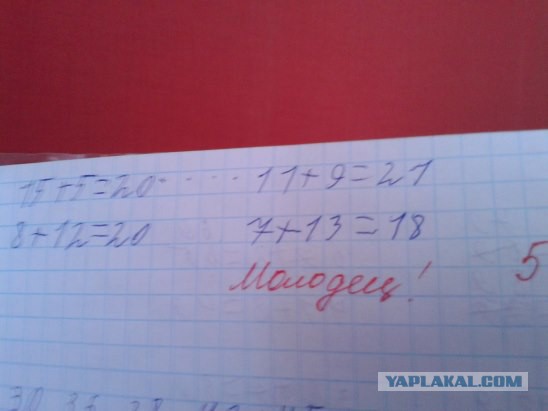 15+5=20 11+9=21
8+12=20 7+13=18
Молодец! 5
YAPLAKAL.COM